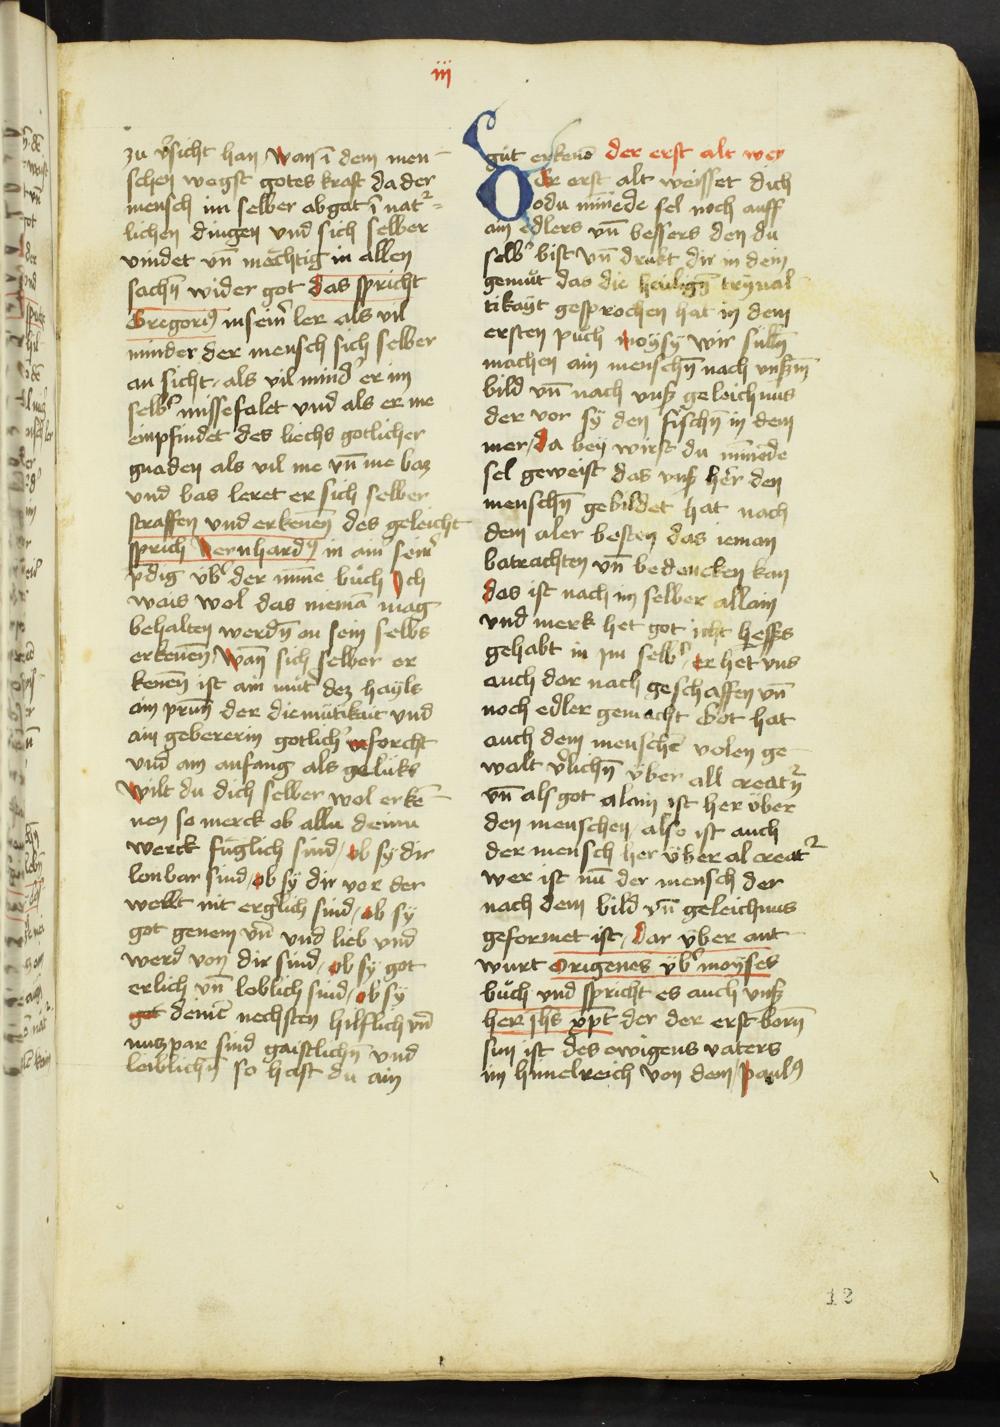 iij
zu v͛sicht han wan ī dem men-
schen wegst gotes kraft da der
mensch im selber abgat ī nat²=
lichen dingen vnd sich selber
vindet vn̄ mechtig in allen
sachn̄ wider got das spricht
Gregoriꝰ in sein̄ ler als vil
minder der mensch sich selber
an sicht als vil mind͛ er im
selb͛ missefalet vnd als er me
empfindet des liechs gotlicher
gnaden als vil me vn̄ me baz
vnd bas leret er sich selber
straffen vnd erkenen̄ des geleicht
sprich Bernhardꝰ in ain͛ sein͛
p̄dig vb͛ der mīne bůch Ich
wais wol das niemā mag
behalten werdn̄ on sein selbs
erkenen̄ Wan̄ sich selber er
kenen̄ ist ain můt͛ dez hayls
ain prun̄ der diemůtikait vnd
ain gebererin gotlich͛ forcht
vnd am anfang als gelůks
Wilt du dich selber wol erkē-
nen so merck ob allu deinu
werck fůglich sind ob sy dir
lonbar sind ob sÿ dir vor der
wellt nit erg͛lich sind ob sÿ
got genem vn̄ vnd lieb vnd
werd von dir sind ob sÿ got
erlich vn̄ loblich sind ob sÿ
got deinē nechsten hilflich vn̄
nuzpar sind gaistlichn̄ vnd
leiblichn̄ so hast du ain
gůt erkenē der erst alt wey
Der erst alt weisset dich
o du mīnede sel noch auff
ain edlers vn̄ bessers den du
selb͛ bist vn̄ drukt dir in dein
gemůt das die heilign̄ trÿual
tikayt gesprochen hat in dem
ersten půch moysÿ wir sůlln̄
machen ain menschn̄ nach vnßm̄
bild vn̄ nach vnß geleichnus
der vor sÿ den fischn̄ in dem
mer da bey wirst du mīnēde
sel geweist das vnß h͛er den
menschn̄ gebildet hat nach
dem aler besten das ieman
batrachten vn̄ bedencken kan
das ist nach im selber allain
vnd merk het got icht heffts
gehabt in Im selb͛ er het vns
auch dar nach geschaffen vn̄
noch edler gemacht Got hat
auch dem menschē volen ge-
walt v͛lichn̄ ÿber all creat͛n̄
vn̄ als got alain ist her ÿber
den menschen also ist auch
der mensch her ÿber al creat²
wer ist nū der mensch der
nach dem bild vn̄ geleichnus
geformet ist Dar ÿber ant
wurt Origenes ÿb͛ moÿses
bůch vnd spricht es auch vnß
her jhs xp̄t der der erst born̄
sun ist des ewigens vaters
im himelreich von dem paulꝰ
12